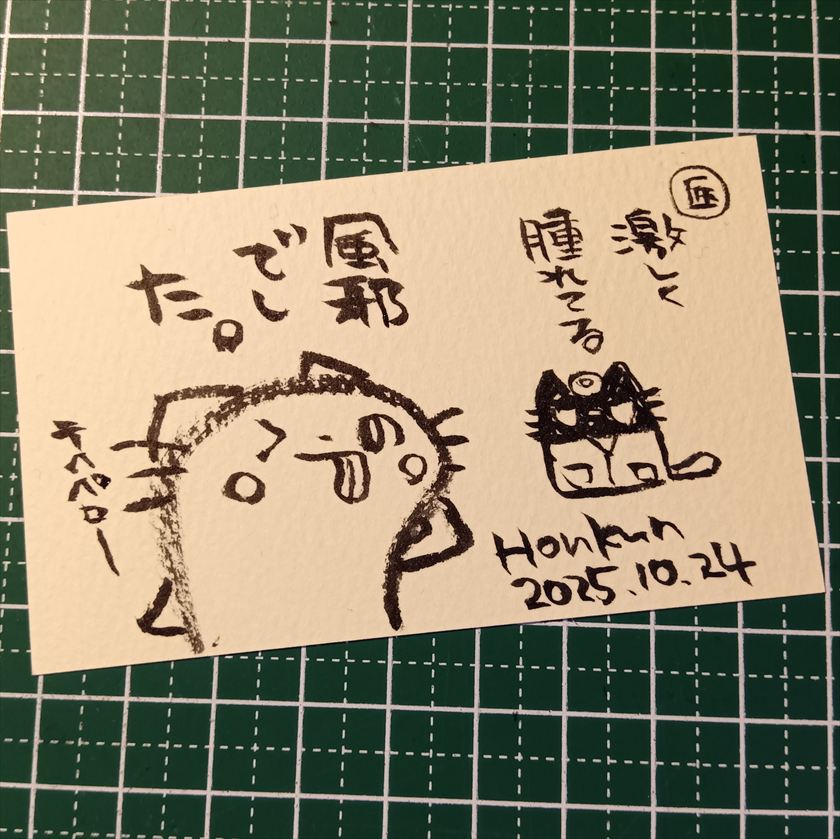 医
激しく
腫れてる
風邪
でし
た。
テヘペロー
Honkun
2025.10.24